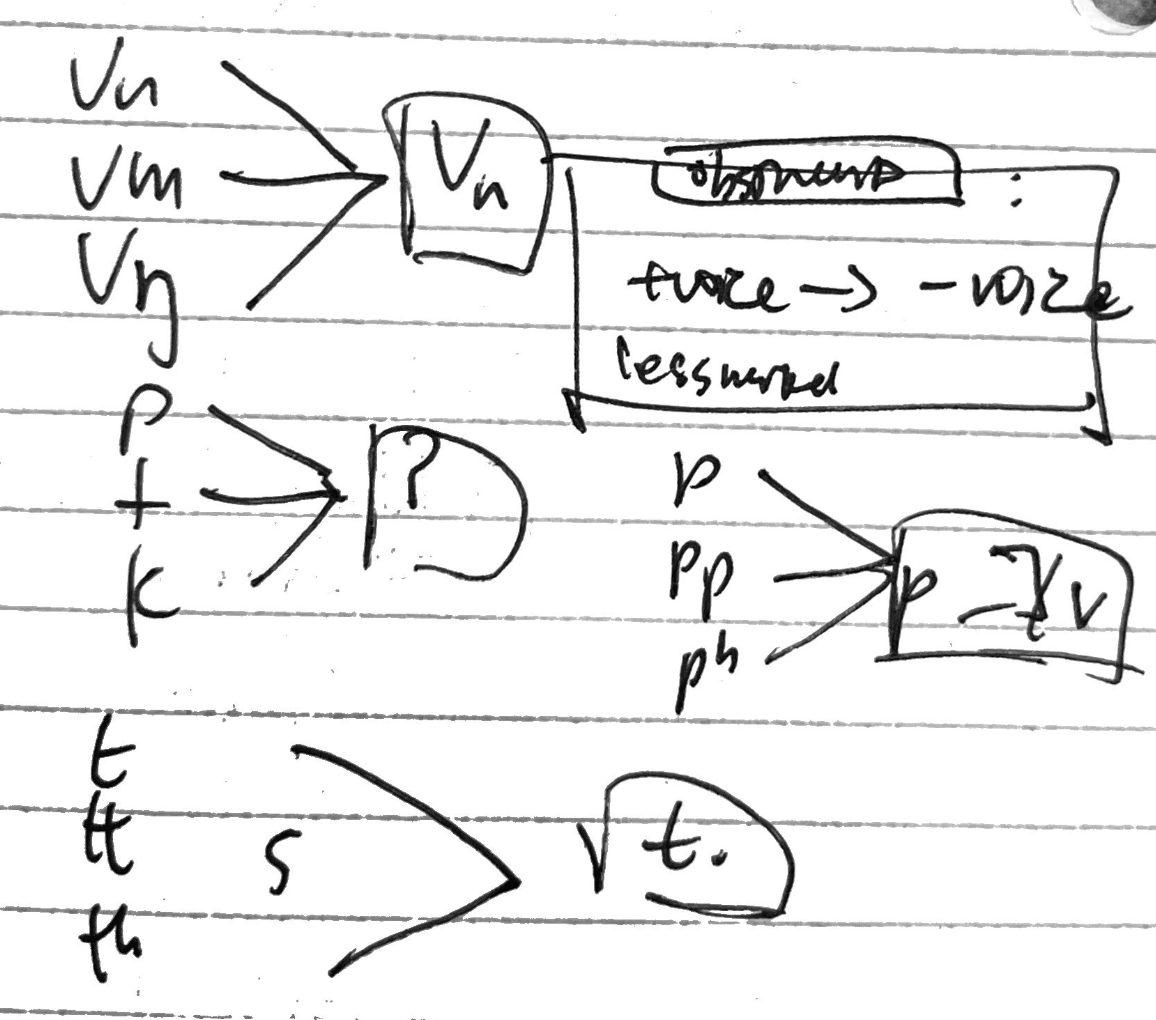 Vn
Vm
Vŋ
Vn
obstruent :
+voice → -voice
less marked
p
t
k
?
p
pp
ph
t
tt
th
s
t.